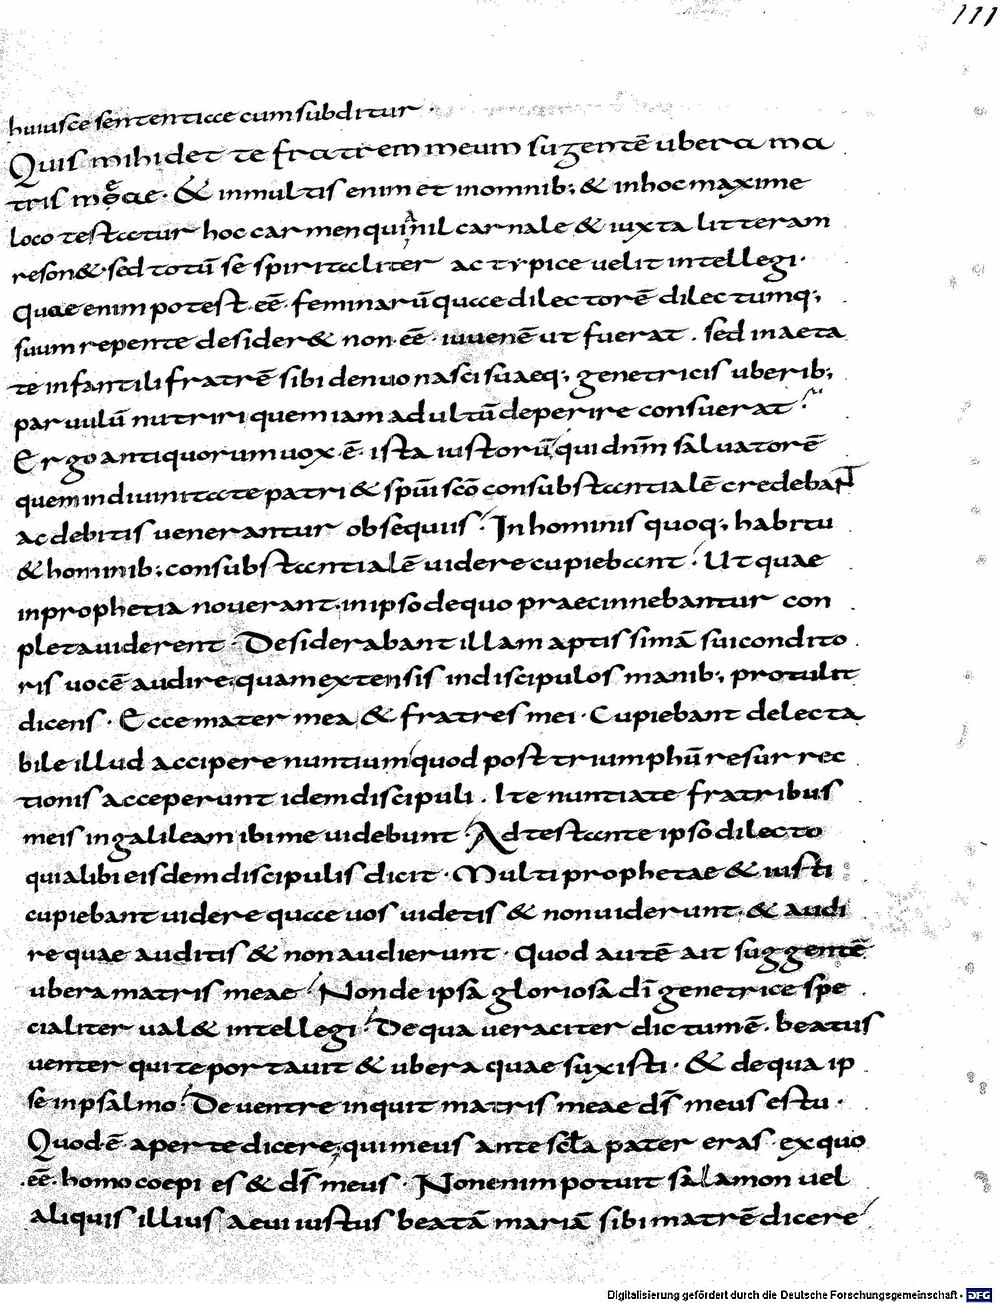 111
huiusce sententiae cum subditur ·
Quis mihi det te fratrem meum sugentē ubera ma
tris meae · & in multis enim et in omnib; & in hoc maxime
loco testatur hoc carmen quia nil carnale & iuxta litteram
reson& · sed totū se spiritaliter ac typice uelit intellegi ·
Quae enim potest · eē · feminarū quae dilectorē dilectumq;
suum repente desider& non · eē · iuuenē ut fuerat . sed in aeta
te infantili fratrē sibi denuo nasci suaeq; genetricis uberib;
paruulū nutriri quem iam adultū deperire consuerat ·
Ergo antiquorum uox · ē · ista iustorū qui dnm̄ saluatorē
quem in diuinitate patri & spūi scō consubstantialē credebant
ac debitis venerantur obsequiis · In hominis quoq; habitu
& hominib; consubstantialē uidere cupiebant · Ut quae
in prophetia nouerant · in ipso de quo praecinnebantur con
pleta uiderent · Desiderabant illam aptissimā sui condito
ris uocē audire quam extensis in discipulos manib; protulit
dicens · Ecce mater mea & fratres mei · Cupiebant delecta
bile illud accipere nuntium quod post triumphū resurrec
tionis acceperunt idem discipuli . Ite nuntiate fratribus
meis in galileam ibi me uidebunt · Adtestante ipso dilecto
qui alibi eisdem discipulis dicit · Multi prophetae & iusti
cupiebant uidere quae uos uidetis & non uiderunt · & audi
re quae auditis & non audierunt · Quod autē ait suggentē
ubera matris meae · Non de ipsa gloriosa dī genetrice spe
cialiter ual& intellegi · De qua ueraciter dictum ē · beatus
uenter qui te portauit & ubera quae suxisti · & de qua ip
se in psalmo · De uentre inquit matris meae ds̄ meus es tu ·
Quod ē aperte dicere qui meus ante scla pater eras · ex quo
· eē · homo coepi es & ds̄ meus · Non enim potuit salamon uel
aliquis illius aeui iustus beatā mariā sibi matrē dicere
Digitalisierung gefördert durch die Deutsche Forschungsgemeinschaft - DFG